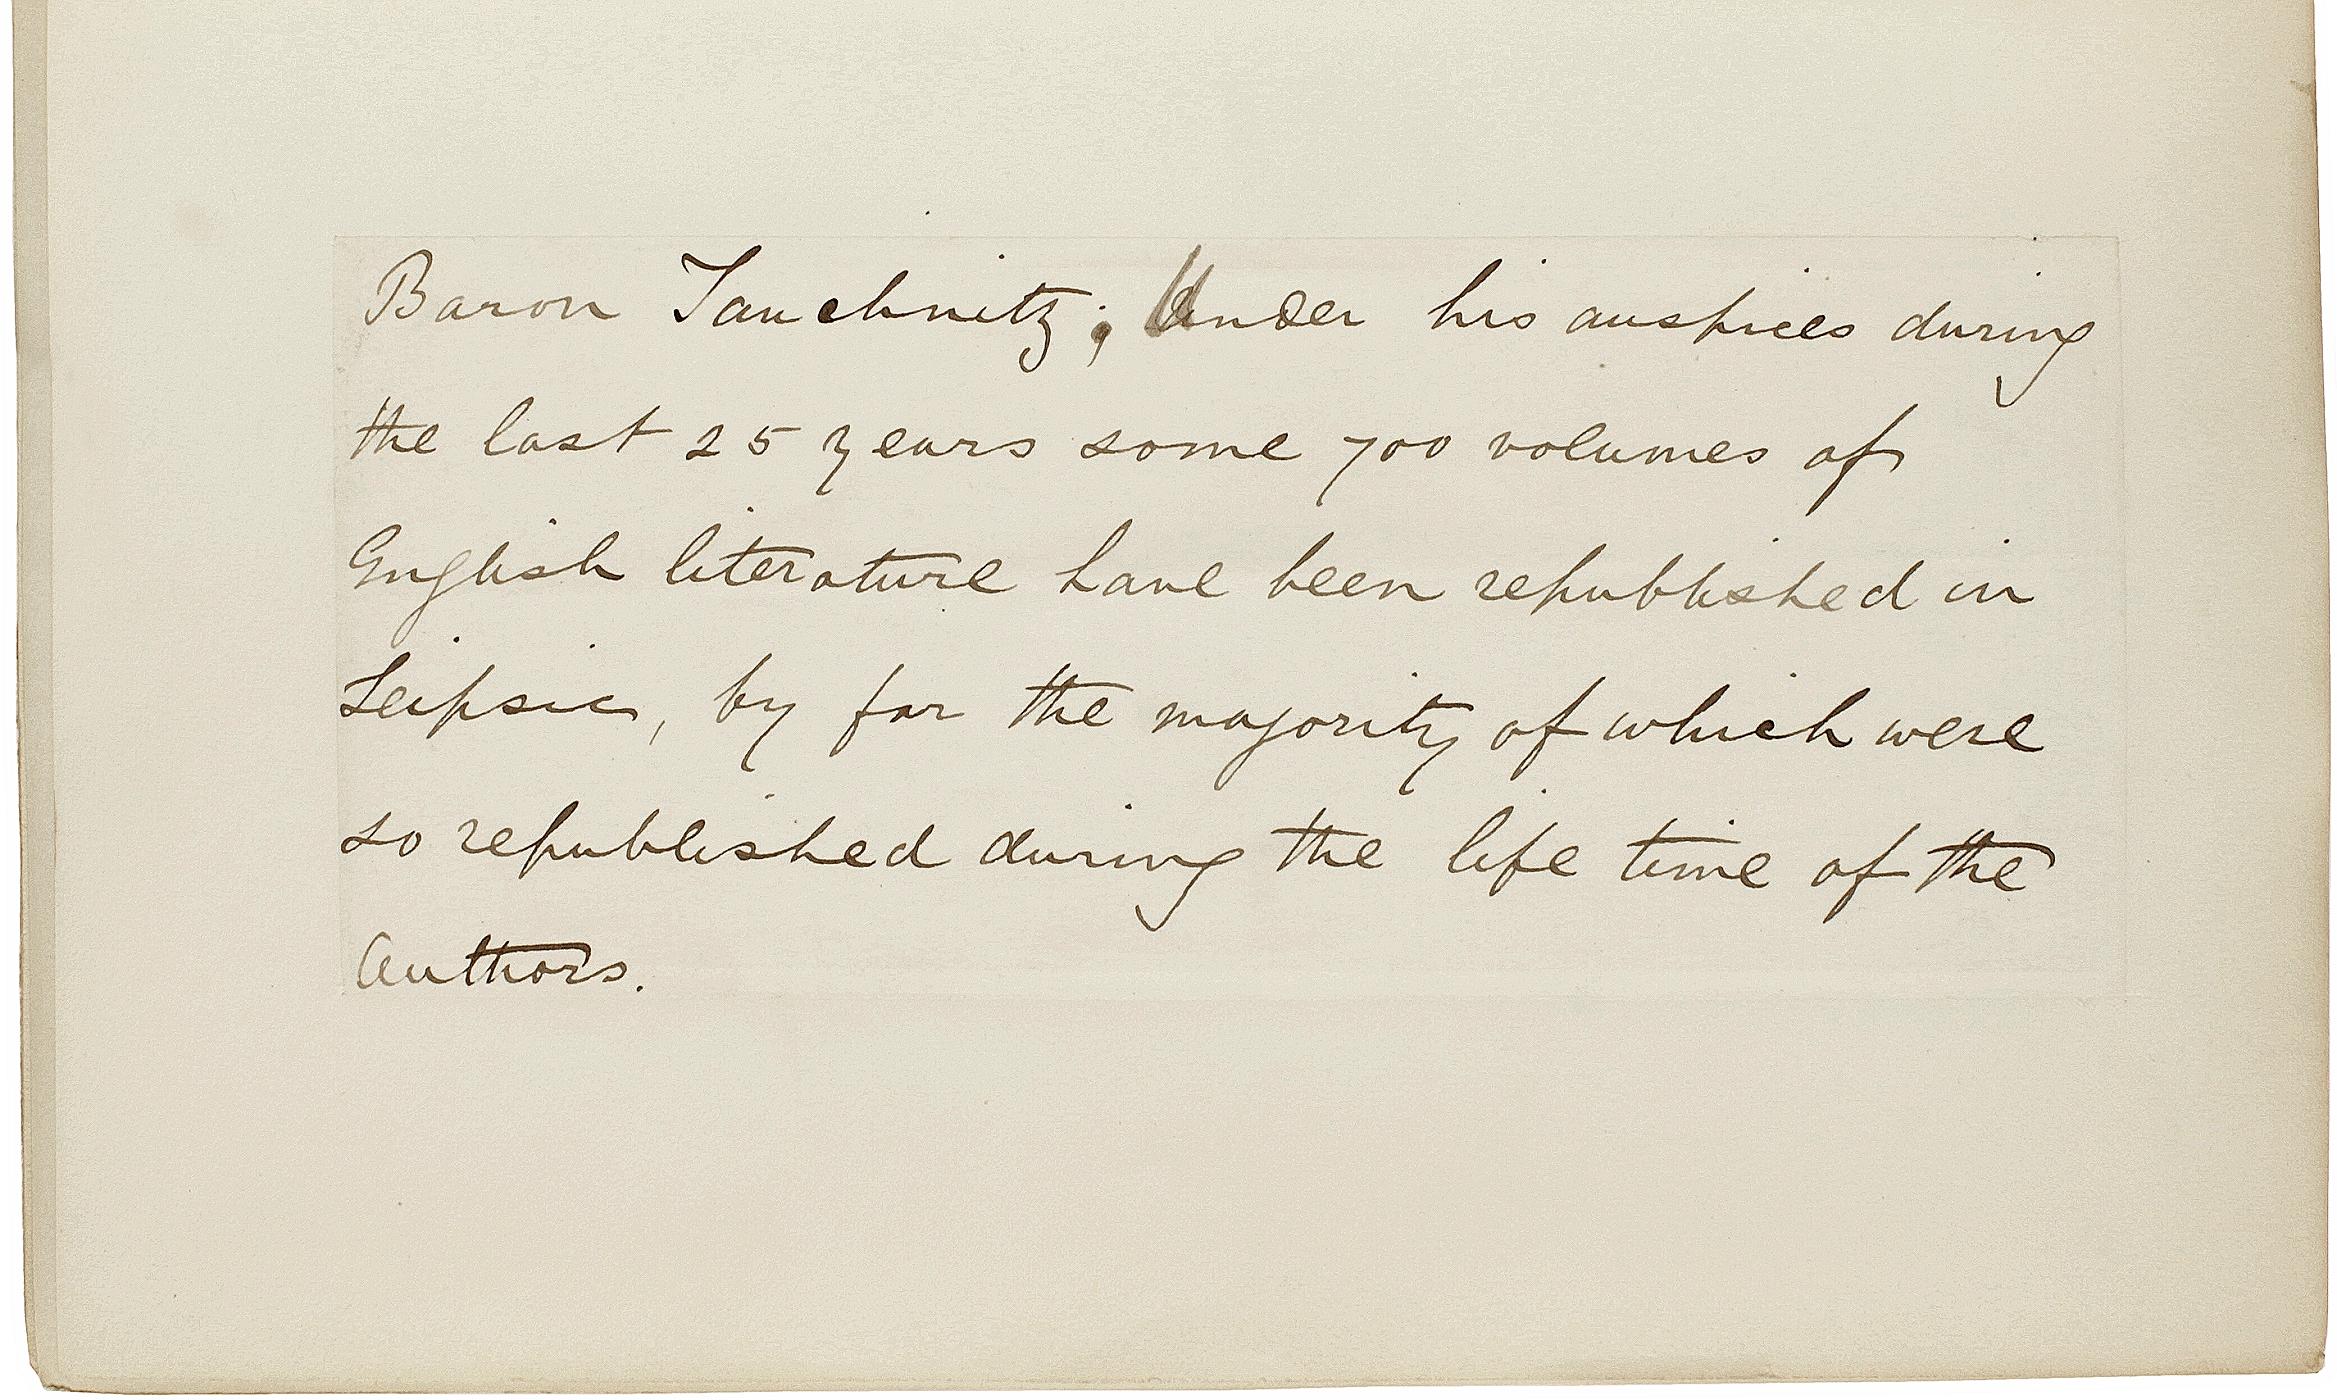 Baron Tauchnitz; Under his auspices during
the last 25 years some 700 volumes of
English literature have been republished in
Leipsic, by far the majority of which were
so republished during the life time of the
Authors.